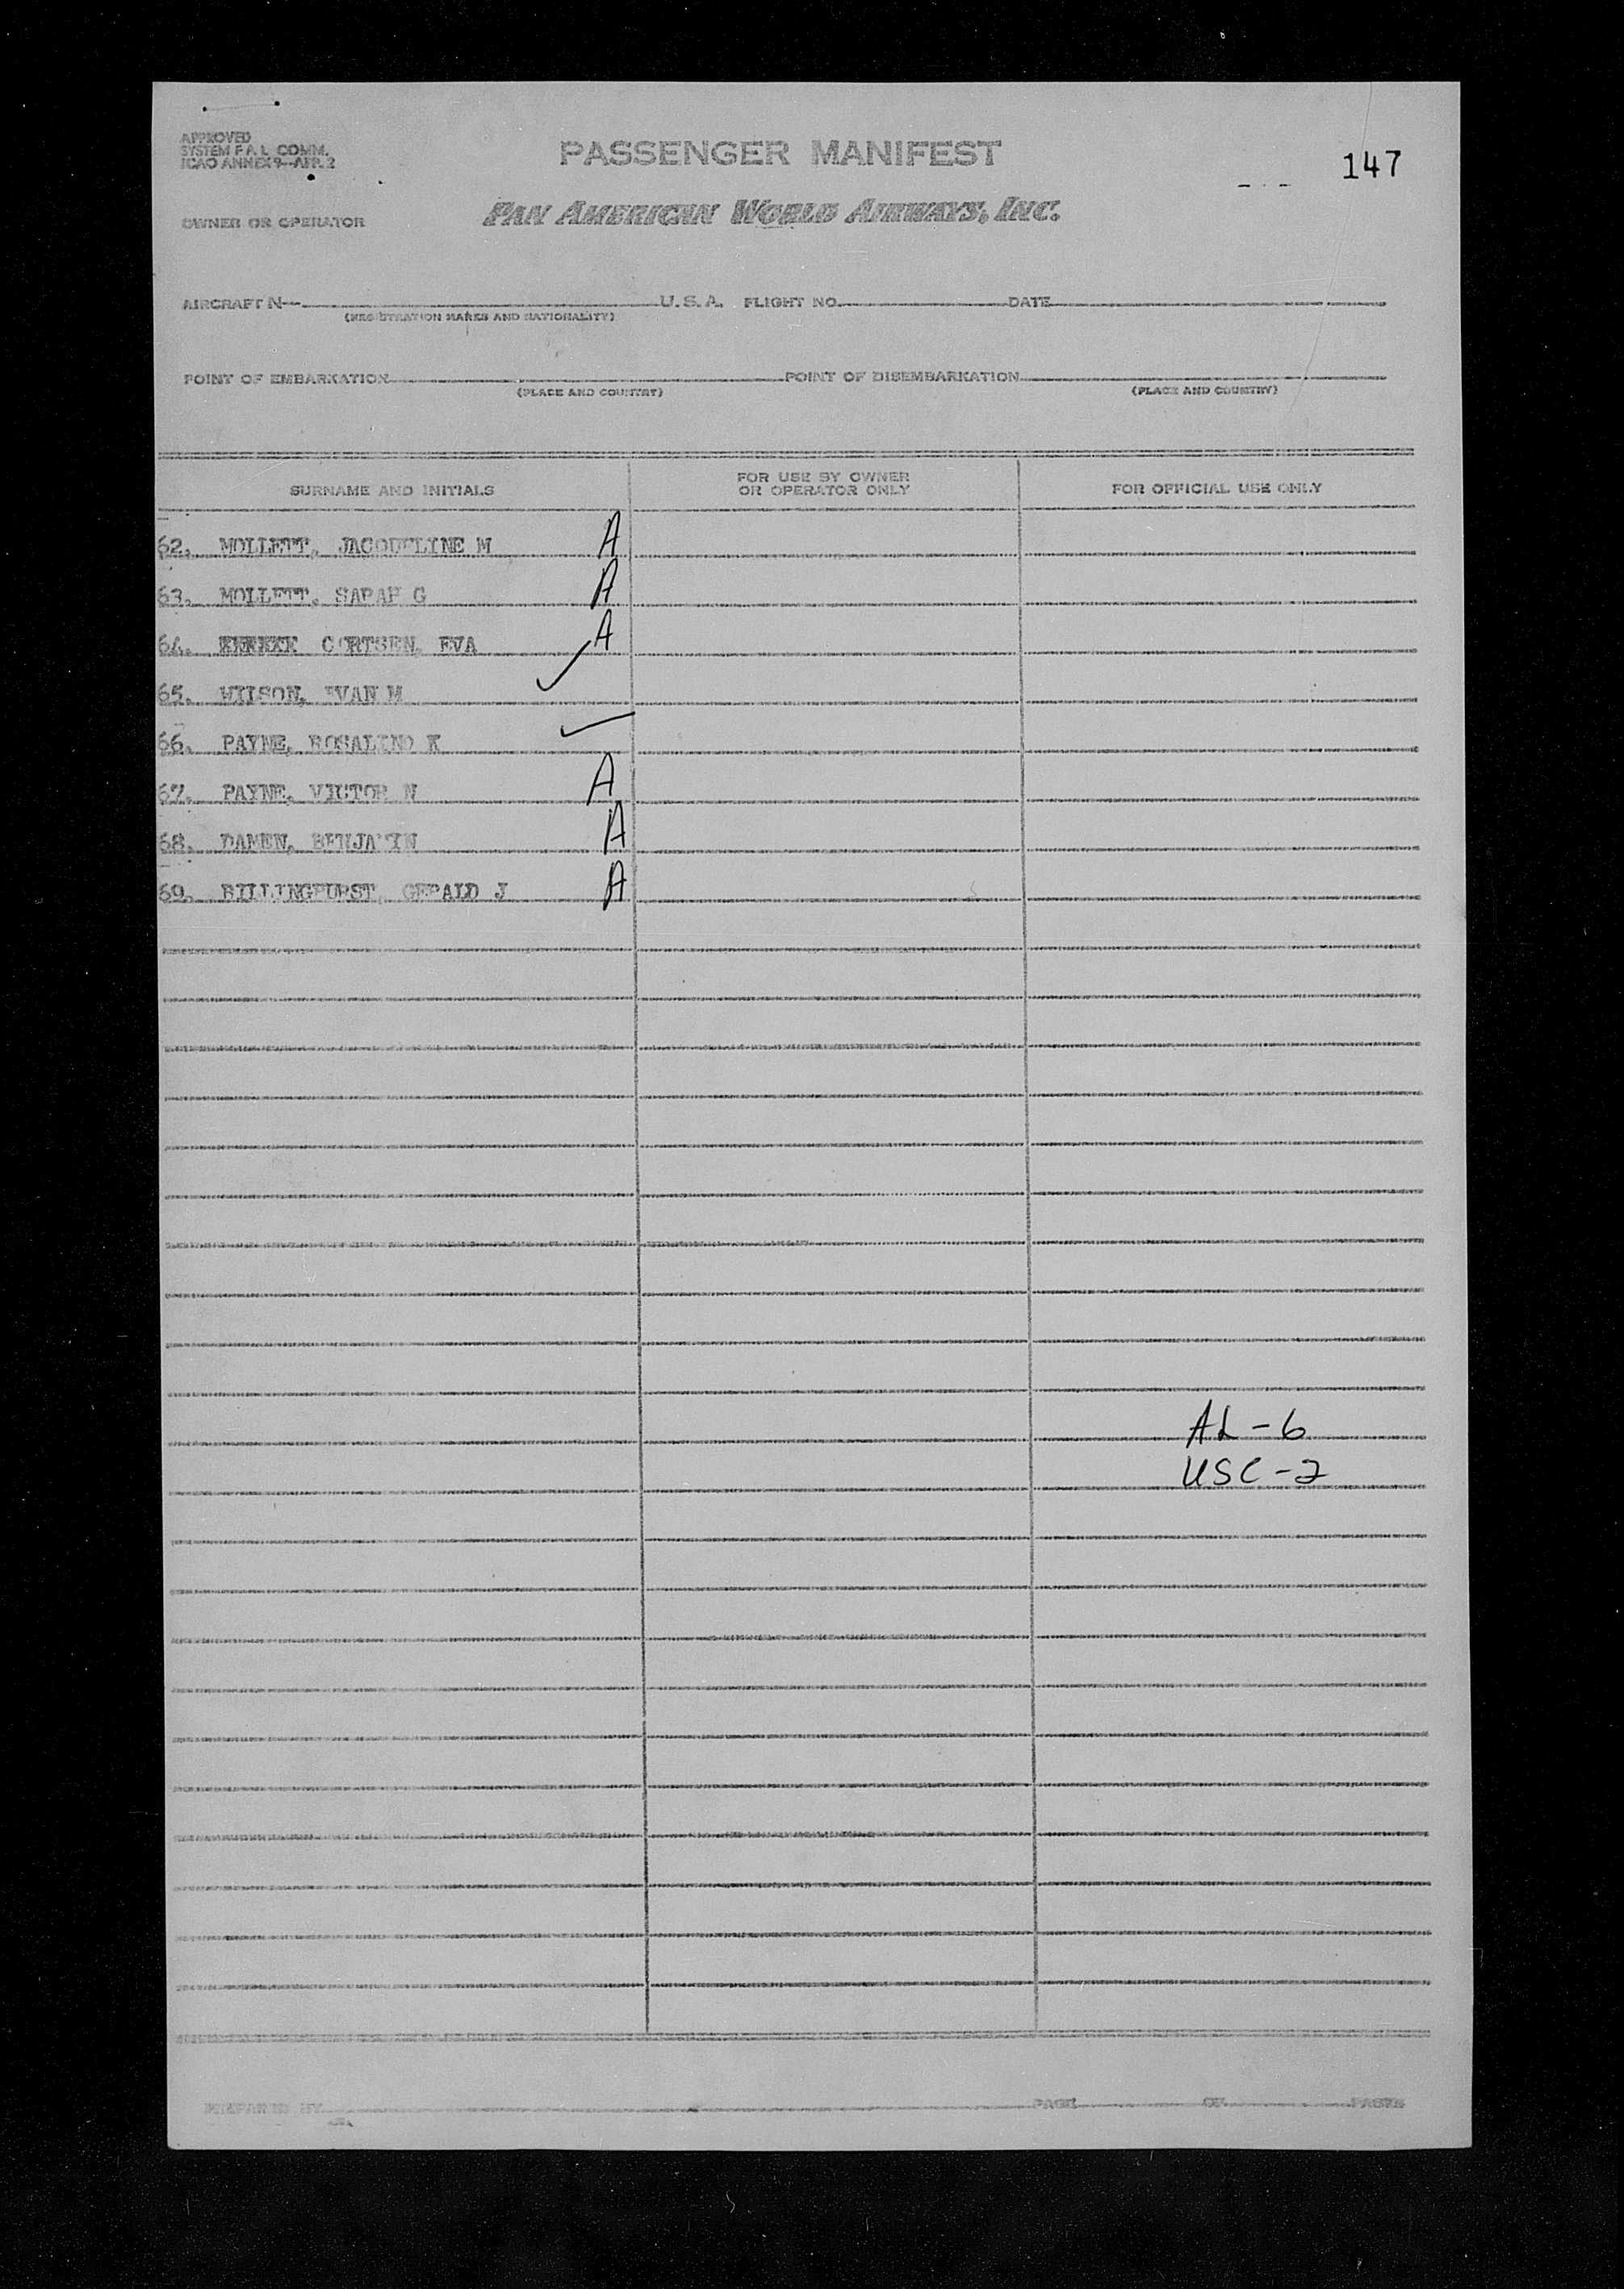 APPROVED
SYSTEM F A L COMM.
ICAO ANNEX 9—APP. 2
PASSENGER MANIFEST
147
OWNER OR OPERATOR
PAN AMERICAN WORLD AIRWAYS, INC.
AIRCRAFT N— U. S. A. FLIGHT NO. DATE
(REGISTRATION MARKS AND NATIONALITY)
POINT OF EMBARKATION POINT OF DISEMBARKATION
(PLACE AND COUNTRY) (PLACE AND COUNTRY)
SURNAME AND INITIALS FOR USE BY OWNER OR OPERATOR ONLY FOR OFFICIAL USE ONLY
62. MOLLETT, JACQUELINE M A
63. MOLLETT, SARAH G A
64. CORTSEN, EVA A
65. WILSON, EVAN M ✓
66. PAYNE, ROSALIND K ✓
67. PAYNE, VICTOR N A
68. DAMEN, BENJAMIN A
69. BILLINGHURST, GERALD J A
AL - 6
USC - 2
PREPARED BY PAGE OF PAGES